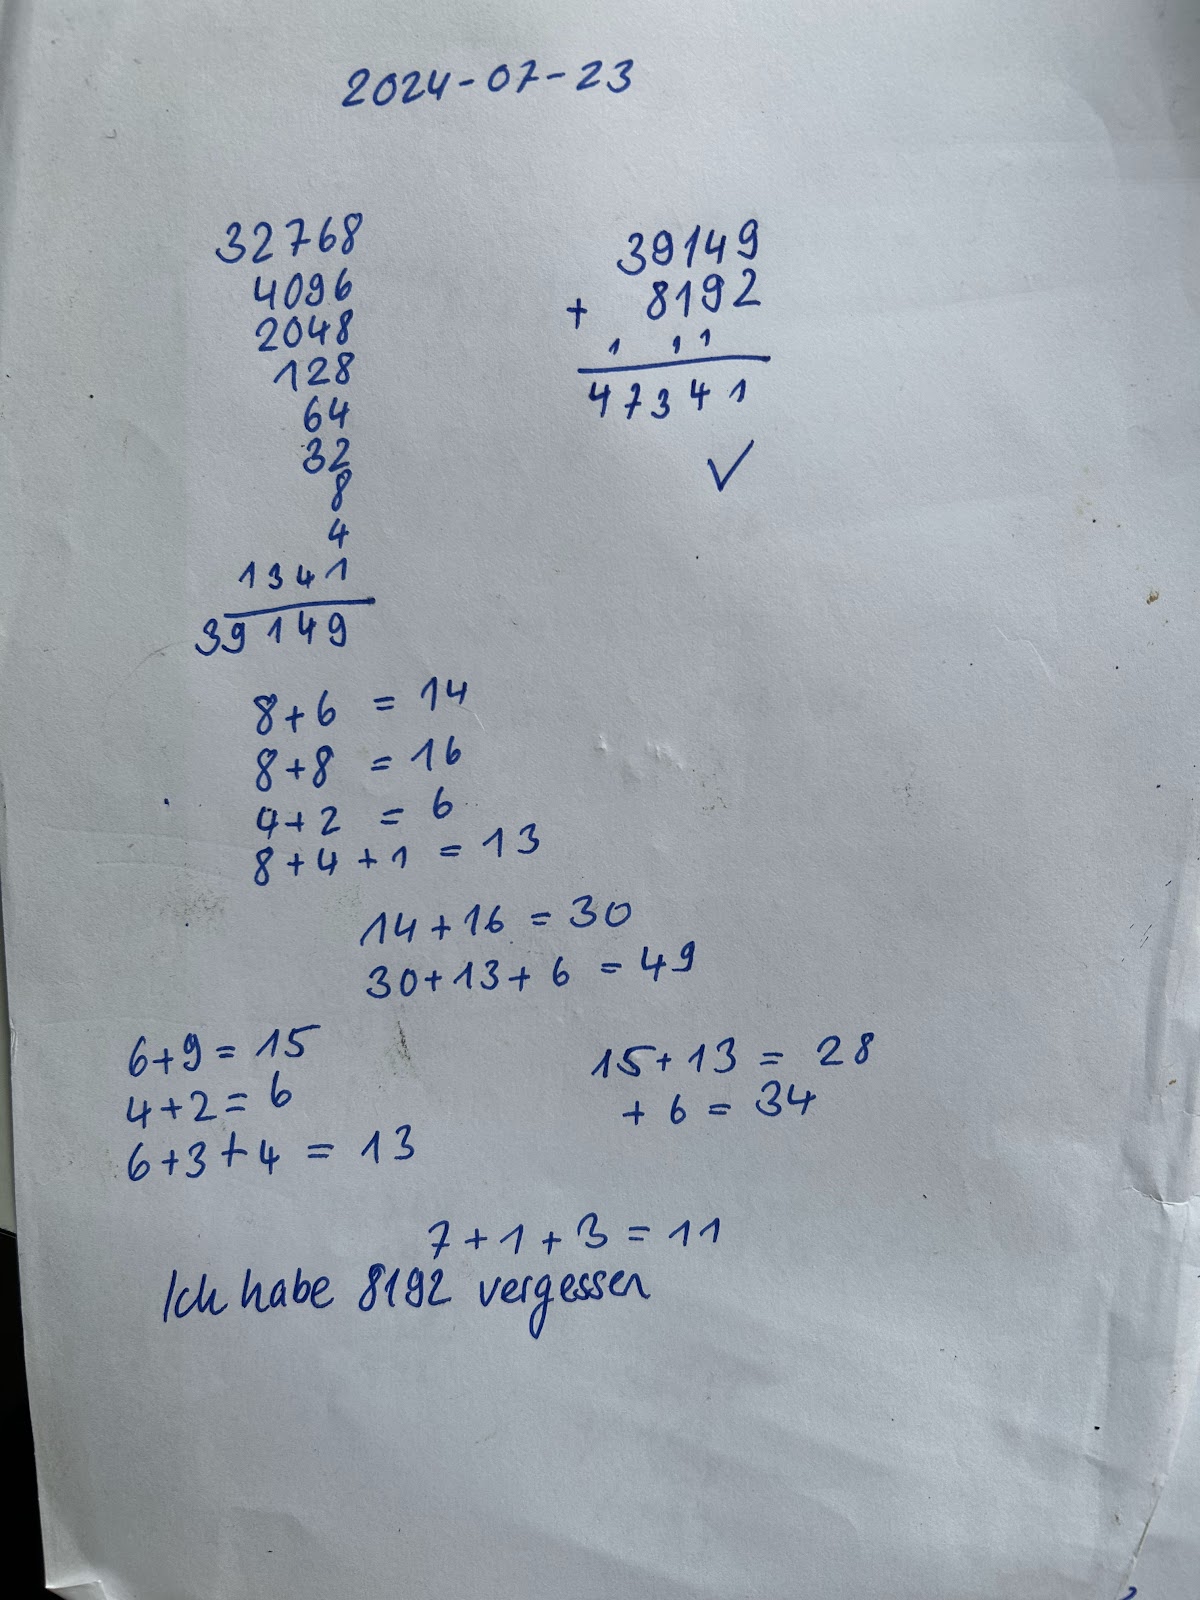 2024-07-23
32768
4096
2048
128
64
32
8
4
1341
39149
39149
+ 8192
1 11
47341
✓
8+6 = 14
8+8 = 16
4+2 = 6
8+4+1 = 13
14+16 = 30
30+13+6 = 49
6+9 = 15
4+2 = 6
6+3+4 = 13
15+13 = 28
+ 6 = 34
7+1+3 = 11
Ich habe 8192 vergessen